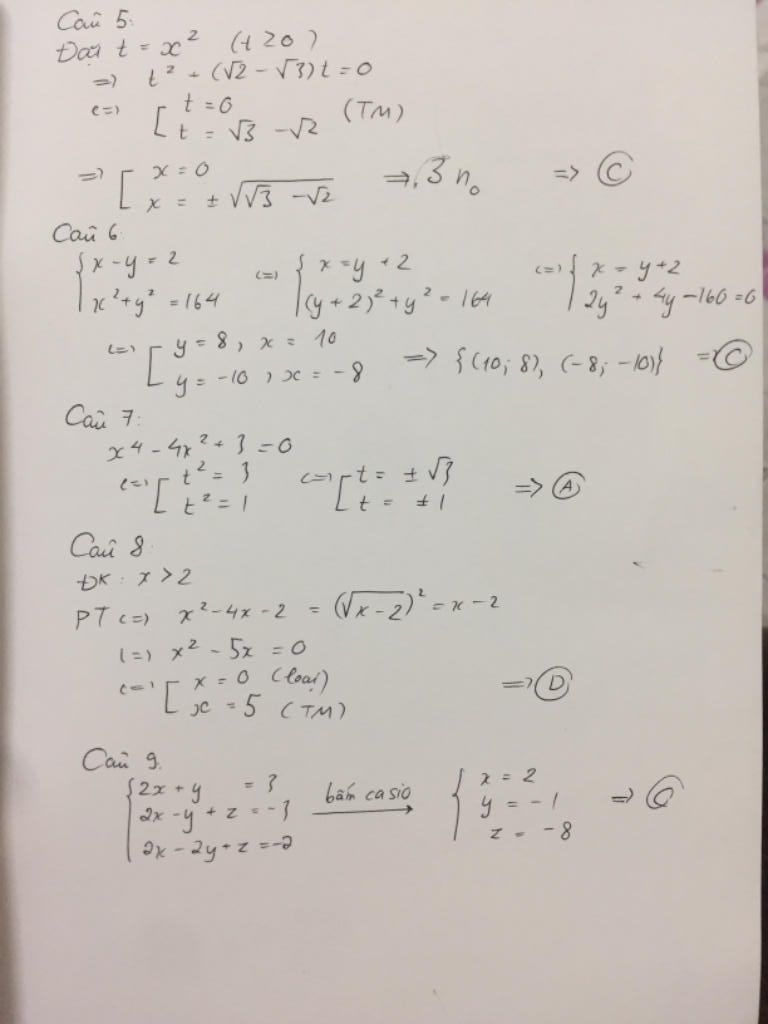 Câu 5:
Đặt t = x² (t ≥ 0)
=> t² + (√2 - √3)t = 0
<=> [ t = 0
t = √3 - √2 (TM)
=> [ x = 0
x = ± √(√3 - √2) => 3 n₀ => C
Câu 6:
{ x - y = 2
x² + y² = 164 <=> { x = y + 2
(y + 2)² + y² = 164 <=> { x = y + 2
2y² + 4y - 160 = 0
<=> [ y = 8, x = 10
y = -10, x = -8 => {(10; 8), (-8; -10)} => C
Câu 7:
x⁴ - 4x² + 3 = 0
<=> [ t² = 3
t² = 1 <=> [ t = ± √3
t = ± 1 => A
Câu 8:
ĐK: x > 2
PT <=> x² - 4x - 2 = (√x - 2)² = x - 2
<=> x² - 5x = 0
<=> [ x = 0 (loại)
x = 5 (TM) => D
Câu 9.
{ 2x + y = 3
2x - y + z = -3
2x - 2y + z = -2 bấm casio → { x = 2
y = -1
z = -8 => C